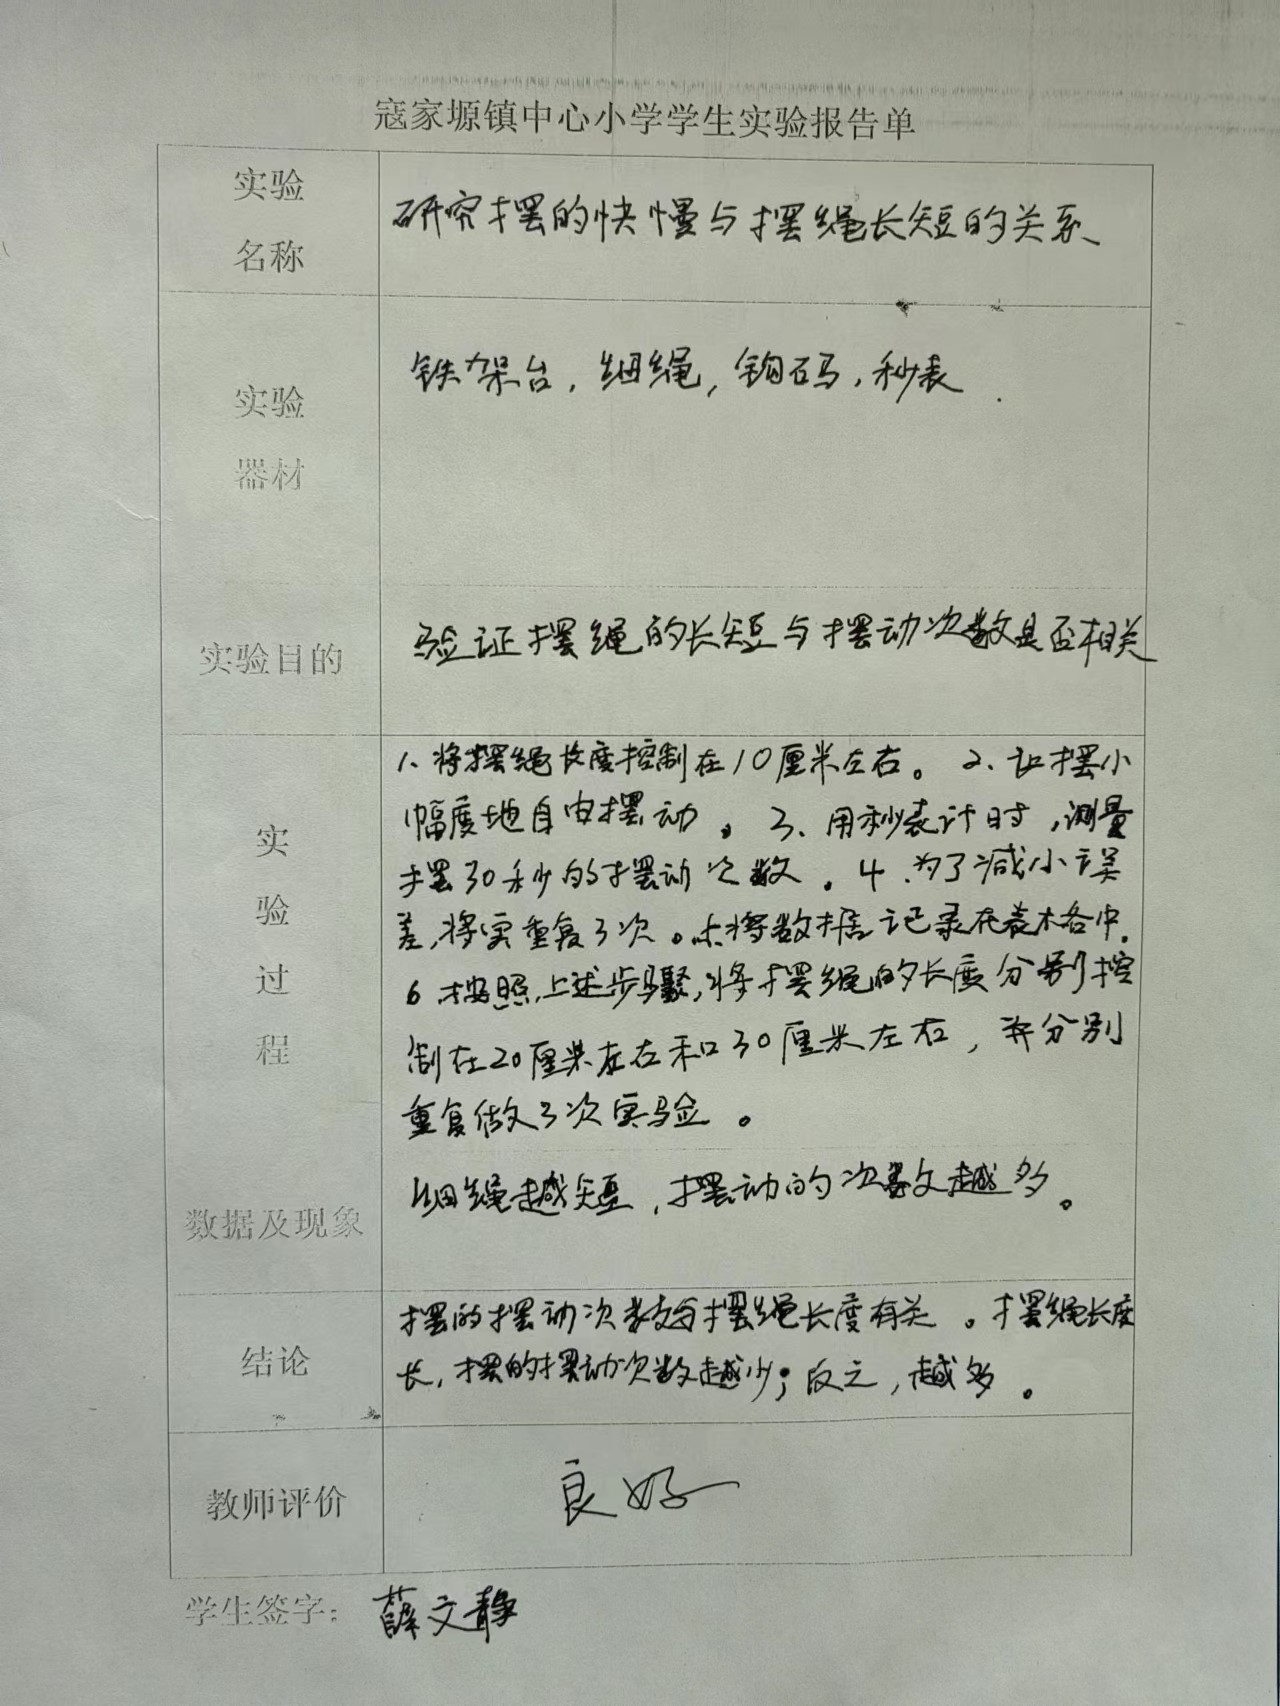 寇家塬镇中心小学学生实验报告单
实验
名称
研究摆的快慢与摆绳长短的关系
实验
器材
铁架台，细绳，钩码，秒表．
实验目的
验证摆绳的长短与摆动次数是否相关
实
验
过
程
1、将摆绳长度控制在10厘米左右。 2、让摆小
幅度地自由摆动。 3、用秒表计时，测量
摆30秒的摆动次数。4、为了减小误
差，将实重复3次。 将数据记录在表格中．
6 按照上述步骤，将摆绳的长度分别控
制在20厘米左右和30厘米左右，并分别
重复做3次实验。
数据及现象
细绳越短，摆动的次数越多。
结论
摆的摆动次数与摆绳长度有关。摆绳长度
长，摆的摆动次数越少；反之，越多。
教师评价
良好
学生签字：薛文静